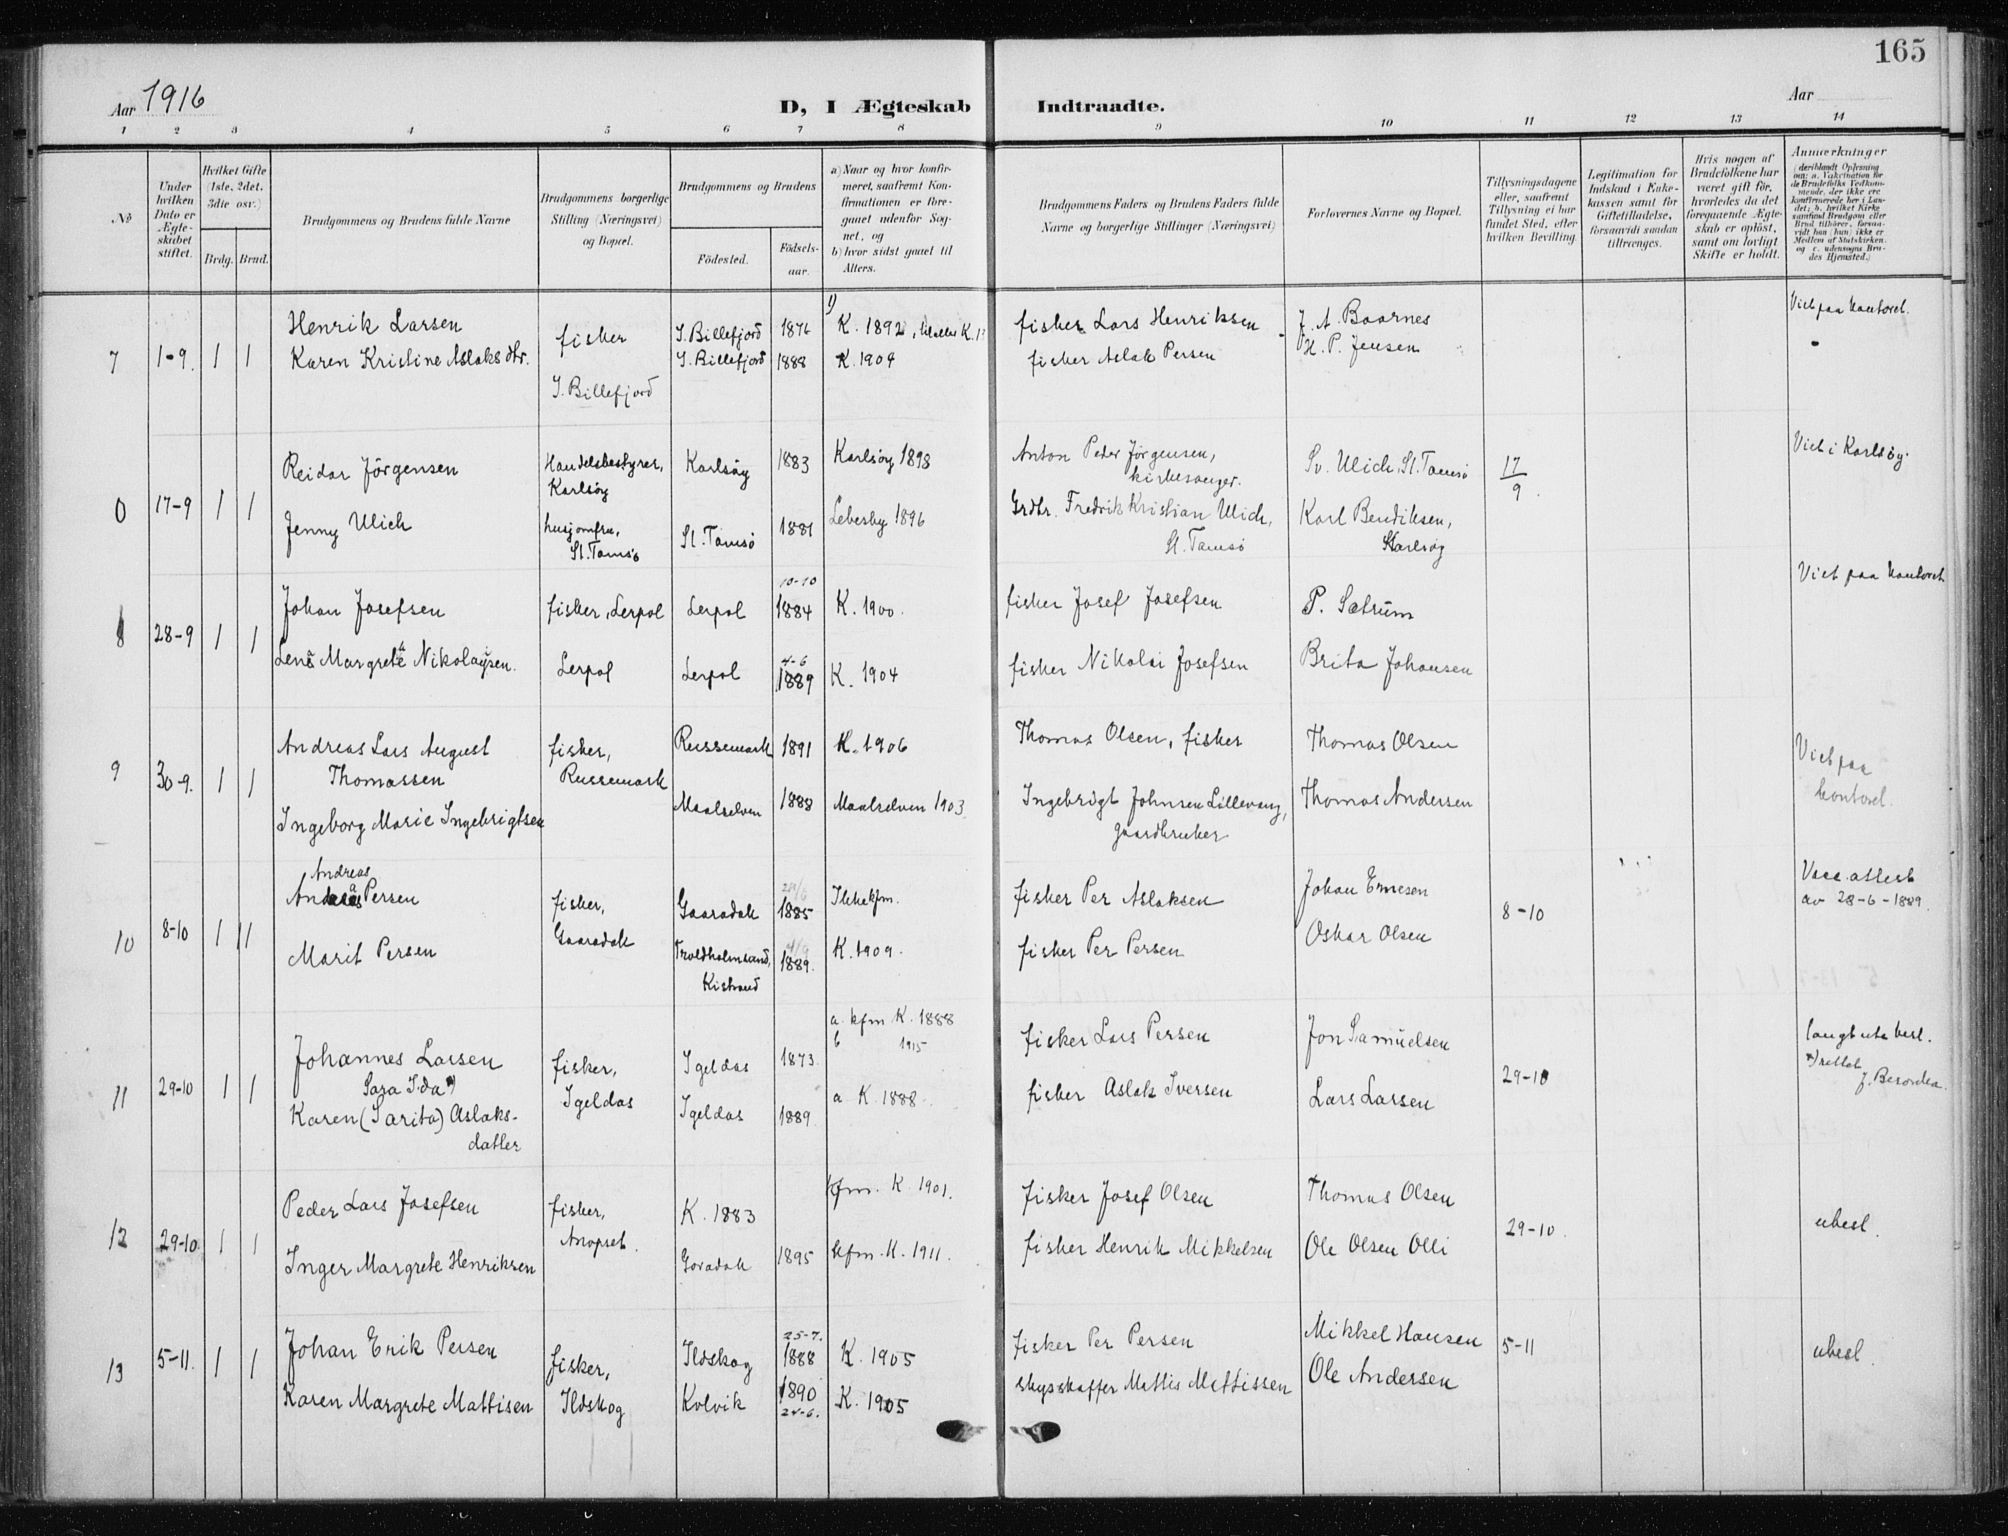 165
Aar 1916
D, I Ægteskab Indtraadte.
Aar
1 2 3 4 5 6 7 8 9 10 11 12 13 14
No
Under hvilken Dato er Ægteskabet stiftet.
Hvilket Gifte (1ste, 2det, 3die osv.)
Brdg. Brud.
Brudgommens og Brudens fulde Navne
Brudgommens borgerlige Stilling (Næringsvei) og Bopæl.
Brudgommens og Brudens
Födested. Födselsaar.
a) Naar og hvor konfirmeret, saafremt Konfirmationen er foregaaet udenfor Sognet, og
b) hvor sidst gaaet til Alters.
Brudgommens Faders og Brudens Faders fulde Navne og borgerlige Stillinger (Næringsvei)
Forlovernes Navne og Bopæl.
Tillysningsdagene eller, saafremt Tillysning ei har fundet Sted, efter hvilken Bevilling.
Legitimation for Indskud i Enkekassen samt for Giftetilladelse, forsaavidt saadan tiltrænges.
Hvis nogen af Brudefolkene har været gift för, hvorledes da det foregaaende Ægteskab er oplöst, samt om lovligt Skifte er holdt.
Anmærkninger
(deriblandt Oplysning om: a. Vakcination for de Brudefolks Vedkommende, der ikke ere konfirmerede her i Landet; b. hvilket Kirkesamfund Brudgom eller Brud tilhörer, forsaavidt han (hun) ikke er Medlem af Statskirken, og c. udensogns Brudes Hjemsted.)
7 1-9 1 1 Henrik Larsen fisker S. Billefjord 1876 1) K. 1892, fisker Lars Henriksen J. A. Baarnes Viet paa kontoret.
Karen Kristine Aslaksdtr. S. Billefjord 1888 K. 1904 fisker Aslak Persen H. P. Jensen
S. Billefjord
0 17-9 1 1 Reidar Jörgensen Handelsbestyrer, Karlsöy Karlsöy 1883 Karlsöy 1898 Anton Peder Jörgensen, kirkesanger. Sv. Ulich, St. Tamsö 17/9. Viet i Karlsöy
Jenny Ulich husjomfru, St. Tamsö St. Tamsö 1881 Lebesby 1896 Grdbr. Fredrik Kristian Ulich, St. Tamsö Karl Bendiksen, Karlsöy
8 28-9 1 1 Johan Josefsen fisker, Lerpol Lerpol 10-10 1884 K. 1900. fisker Josef Josefsen P. Sætrum Viet paa kontoret
Lene Margrete Nikolaysen. Lerpol Lerpol 4-6 1889 K. 1904 fisker Nikolai Josefsen Brita Johansen
9 30-9. 1 1 Andreas Lars August Thomassen fisker, Russemark Russemark 1891 K. 1906 Thomas Olsen, fisker Thomas Olsen Viet paa kontoret.
Ingeborg Marie Ingebrigtsen Maalselven 1888 Maalselven 1903 Ingebrigt Johnsen Lillevang, gaardbruker Thomas Andersen
10 8-10 1 1 Andreas
Persen fisker, Gaaradak Gaaradak 1885 Ikke kfm. fisker Per Aslaksen Johan Ernesen 8-10 Vacc. attest av 28-6-1889.
Marit Persen Troldholmsund, Kistrand 1889. K. 1909. fisker Per Persen Oskar Olsen
11 29-10 1 1 Johannes Larsen fisker, Igeldas Igeldas 1873. a. kfm K. 1888 b 1915 fisker Lars Persen Jon Samuelsen 29-10
Sara Ida *)
Karen (Sarita) Aslaksdatter Igeldas 1889 a K. 1888. fisker Aslak Iversen Lars Larsen
*) rettet
12 29-10. 1 1 Peder Lars Josefsen fisker, Anopset. K. 1883 kfm. K. 1901. fisker Josef Olsen Thomas Olsen 29-10. ubesl.
Inger Margrete Henriksen Goradak 1895 kfm. K. 1911. fisker Henrik Mikkelsen Ole Olsen Olli
13 5-11. 1 1 Johan Erik Persen fisker, Ildskog Ildskog 25-7. 1888 K. 1905 fisker Per Persen Mikkel Hansen 5-11 ubesl.
Karen Margrete Mattisen Kolvik 1890 24-6. K. 1905 skysskaffer Mattis Mattissen Ole Andersen